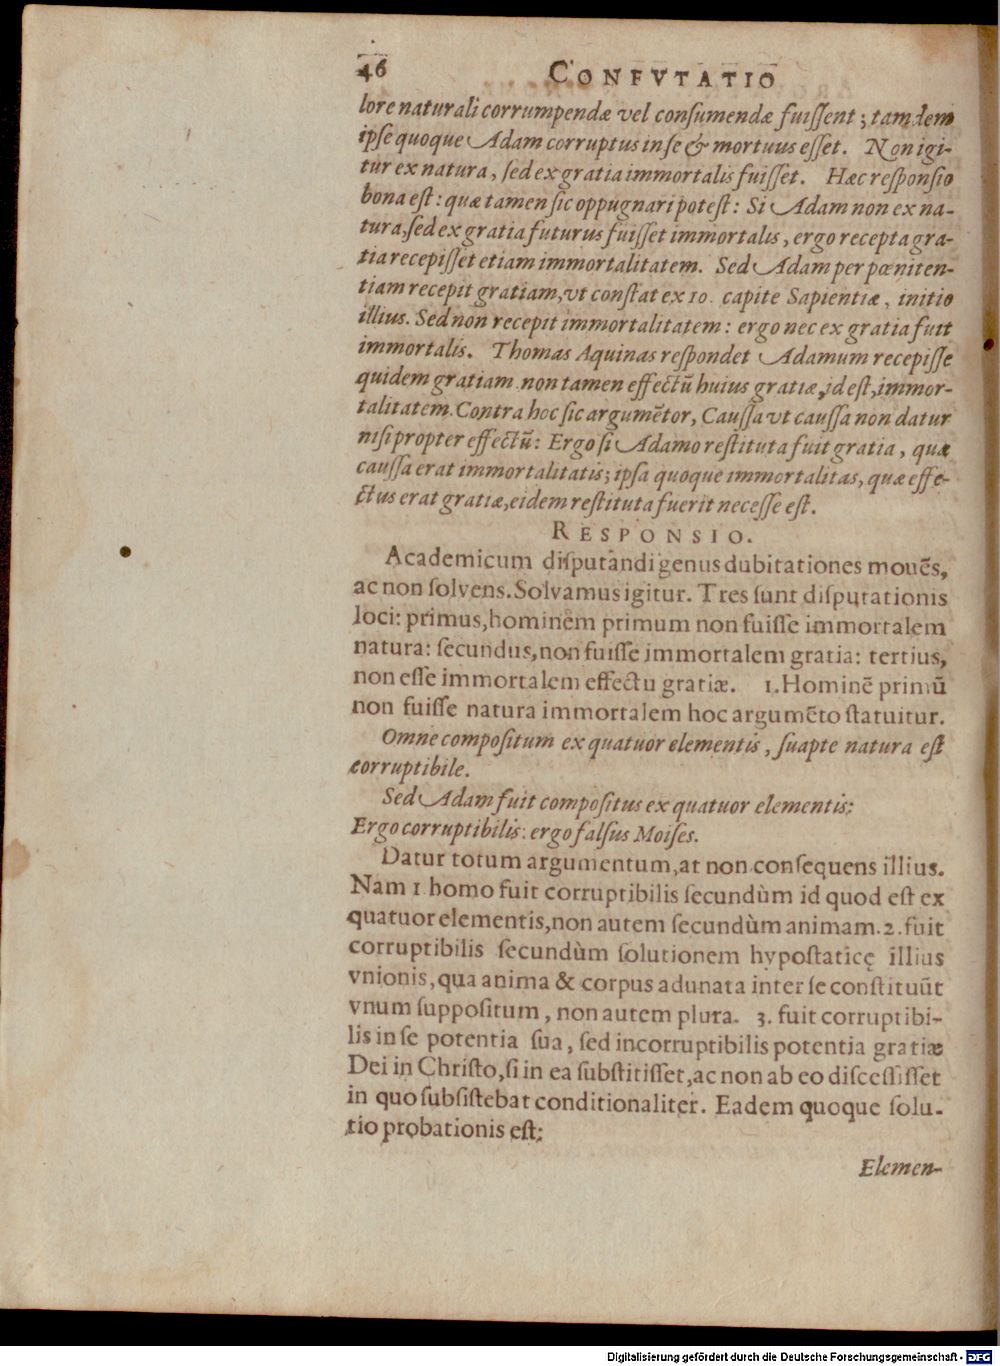 46 CONFVTATIO
lore naturali corrumpendæ vel consumendæ fuissent; tamdem
ipse quoque Adam corruptus in se & mortuus esset. Non igi-
tur ex natura, sed ex gratia immortalis fuisset. Hæc responsio
bona est: quæ tamen sic oppugnari potest: Si Adam non ex na-
tura, sed ex gratia futurus fuisset immortalis, ergo recepta gra-
tia recepisset etiam immortalitatem. Sed Adam per pœniten-
tiam recepit gratiam, vt constat ex 10. capite Sapientiæ, initio
illius. Sed non recepit immortalitatem: ergo nec ex gratia fuit
immortalis. Thomas Aquinas respondet Adamum recepisse
quidem gratiam non tamen effectũ huius gratiæ, id est, immor-
talitatem. Contra hoc sic argumẽtor, Caussa vt caussa non datur
nisi propter effectũ: Ergo si Adamo restituta fuit gratia, quæ
caussa erat immortalitatis; ipsa quoque immortalitas, quæ effe-
ctus erat gratiæ, eidem restituta fuerit necesse est.
RESPONSIO.
Academicum disputandi genus dubitationes mouẽs,
ac non solvens. Solvamus igitur. Tres sunt disputationis
loci: primus, hominem primum non fuisse immortalem
natura: secundus, non fuisse immortalem gratia: tertius,
non esse immortalem effectu gratiæ. 1. Hominẽ primũ
non fuisse natura immortalem hoc argumẽto statuitur.
Omne compositum ex quatuor elementis, suapte natura est
corruptibile.
Sed Adam fuit compositus ex quatuor elementis:
Ergo corruptibilis: ergo falsus Moises.
Datur totum argumentum, at non consequens illius.
Nam 1 homo fuit corruptibilis secundùm id quod est ex
quatuor elementis, non autem secundùm animam. 2. fuit
corruptibilis secundùm solutionem hypostaticę illius
vnionis, qua anima & corpus adunata inter se constituũt
vnum suppositum, non autem plura. 3. fuit corruptibi-
lis in se potentia sua, sed incorruptibilis potentia gratiæ
Dei in Christo, si in ea substitisset, ac non ab eo discessisset
in quo subsistebat conditionaliter. Eadem quoque solu-
tio probationis est:
Elemen-
Digitalisierung gefördert durch die Deutsche Forschungsgemeinschaft - DFG